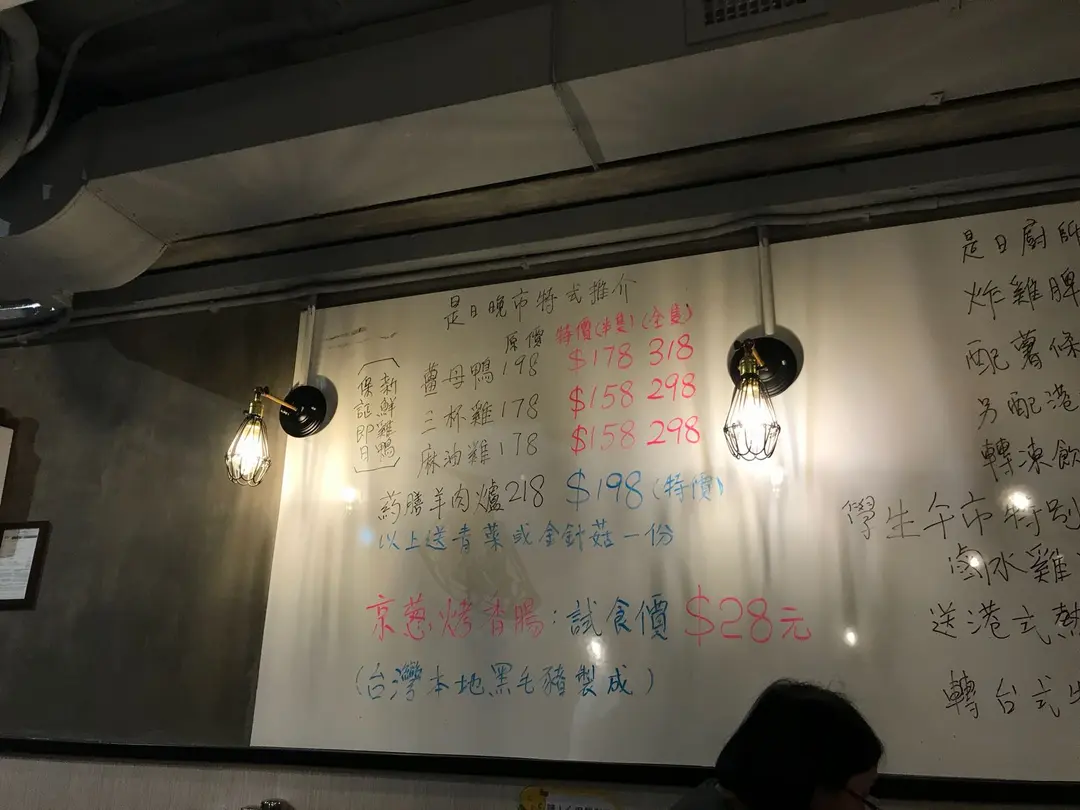 是日晚市特式推介
原價 特價(半隻) (全隻)
(新鮮雞鴨
保証即日)
薑母鴨 198 $178 318
三杯雞 178 $158 298
麻油雞 178 $158 298
葯膳羊肉爐 218 $198 (特價)
以上送青菜或金針菇一份
京葱烤香腸:試食價 $28元
(台灣本地黑毛豬製成)
是日廚師
炸雞脾
配薯條
另配港
轉凍飲
學生午市特別
鹵水雞
送港式熱
轉台式